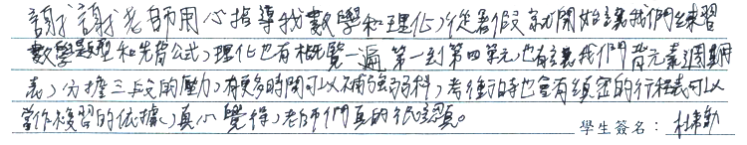 謝謝老師用心指導我數學和理化，從暑假就開始讓我們練習
數學題型和先背公式，理化也有概覽一遍第一到第四單元，也有讓我們背元素週期
表，分擔三上的壓力，有更多時間可以補強弱科，考衝時也會有縝密的行程表可以
當作複習的依據，真心覺得，老師們真的很認真。
學生簽名：杜